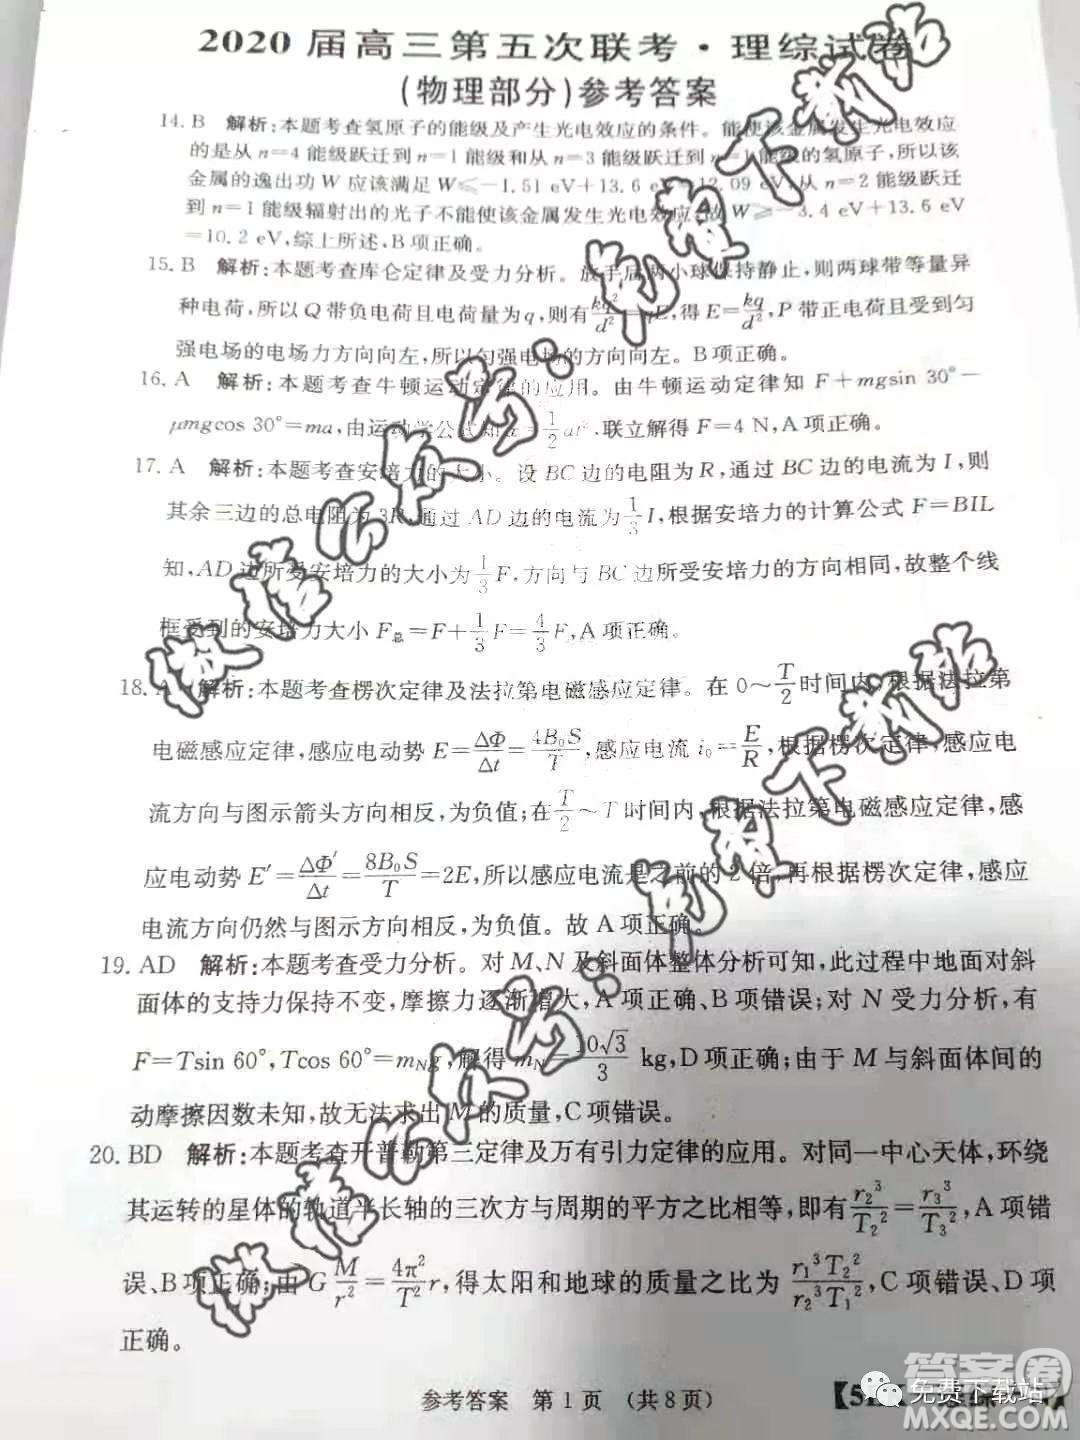 2020届高三第五次联考·理综试卷
(物理部分)参考答案
14. B 解析:本题考查氢原子的能级及产生光电效应的条件。能使该金属发生光电效应
的是从n=4能级跃迁到n=1能级和从n=3能级跃迁到n=1能级的氢原子,所以该
金属的逸出功W应该满足W≤-1.51 eV+13.6 eV=12.09 eV,从n=2能级跃迁
到n=1能级辐射出的光子不能使该金属发生光电效应,故W≥-3.4 eV+13.6 eV
=10.2 eV,综上所述,B项正确。
15. B 解析:本题考查库仑定律及受力分析。放手后两小球保持静止,则两球带等量异
种电荷,所以Q带负电荷且电荷量为q,则有kq²/d²=qE,得E=kq/d²,P带正电荷且受到匀
强电场的电场力方向向左,所以匀强电场的方向向左。B项正确。
16. A 解析:本题考查牛顿运动定律的应用。由牛顿运动定律知F+mgsin 30°-
μmgcos 30°=ma,由运动学公式知x=1/2at²,联立解得F=4 N,A项正确。
17. A 解析:本题考查安培力的大小。设BC边的电阻为R,通过BC边的电流为I,则
其余三边的总电阻为3R,通过AD边的电流为1/3I,根据安培力的计算公式F=BIL
知,AD边所受安培力的大小为1/3F,方向与BC边所受安培力的方向相同,故整个线
框受到的安培力大小F总=F+1/3F=4/3F,A项正确。
18. A 解析:本题考查楞次定律及法拉第电磁感应定律。在0~T/2时间内,根据法拉第
电磁感应定律,感应电动势E=ΔΦ/Δt=4B₀S/T,感应电流i₀=E/R,根据楞次定律,感应电
流方向与图示箭头方向相反,为负值;在T/2~T时间内,根据法拉第电磁感应定律,感
应电动势E′=ΔΦ′/Δt=8B₀S/T=2E,所以感应电流是之前的2倍,再根据楞次定律,感应
电流方向仍然与图示方向相反,为负值。故A项正确。
19. AD 解析:本题考查受力分析。对M、N及斜面体整体分析可知,此过程中地面对斜
面体的支持力保持不变,摩擦力逐渐增大,A项正确、B项错误;对N受力分析,有
F=Tsin 60°,Tcos 60°=m_N g,解得m_N=10√3/3 kg,D项正确;由于M与斜面体间的
动摩擦因数未知,故无法求出M的质量,C项错误。
20. BD 解析:本题考查开普勒第三定律及万有引力定律的应用。对同一中心天体,环绕
其运转的星体的轨道半长轴的三次方与周期的平方之比相等,即有r₂³/T₂²=r₃³/T₃²,A项错
误、B项正确;由G M/r²=4π²/T² r,得太阳和地球的质量之比为r₁³T₂²/r₂³T₁²,C项错误、D项
正确。
参考答案 第1页 (共8页)
微信公众号:免费下载站
微信公众号:免费下载站
免费下载站
答案圈
MXQE.COM